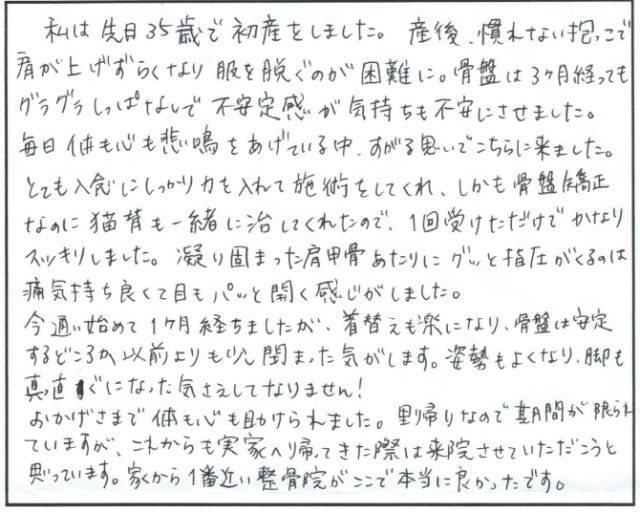 私は先日35歳で初産をしました。産後、慣れない抱っこで
肩が上げずらくなり服を脱ぐのが困難に。骨盤は3ヶ月経っても
グラグラしっぱなしで不安定感が気持ちも不安にさせました。
毎日体も心も悲鳴をあげている中、すがる思いでこちらに来ました。
とても入念にしっかり力を入れて施術をしてくれ、しかも骨盤矯正
なのに猫背も一緒に治してくれたので、1回受けただけでかなり
スッキリしました。凝り固まった肩甲骨あたりにグッと指圧がくるのは
痛気持ち良くて目もパッと開く感じがしました。
今通い始めて1ヶ月経ちましたが、着替えも楽になり、骨盤は安定
するどころか以前よりも少し閉まった気がします。姿勢もよくなり、脚も
真直ぐになった気さえしてなりません!
おかげさまで体も心も助けられました。里帰りなので期間が限られ
ていますが、これからも実家へ帰ってきた際は来院させていただこうと
思っています。家から1番近い整骨院がここで本当に良かったです。